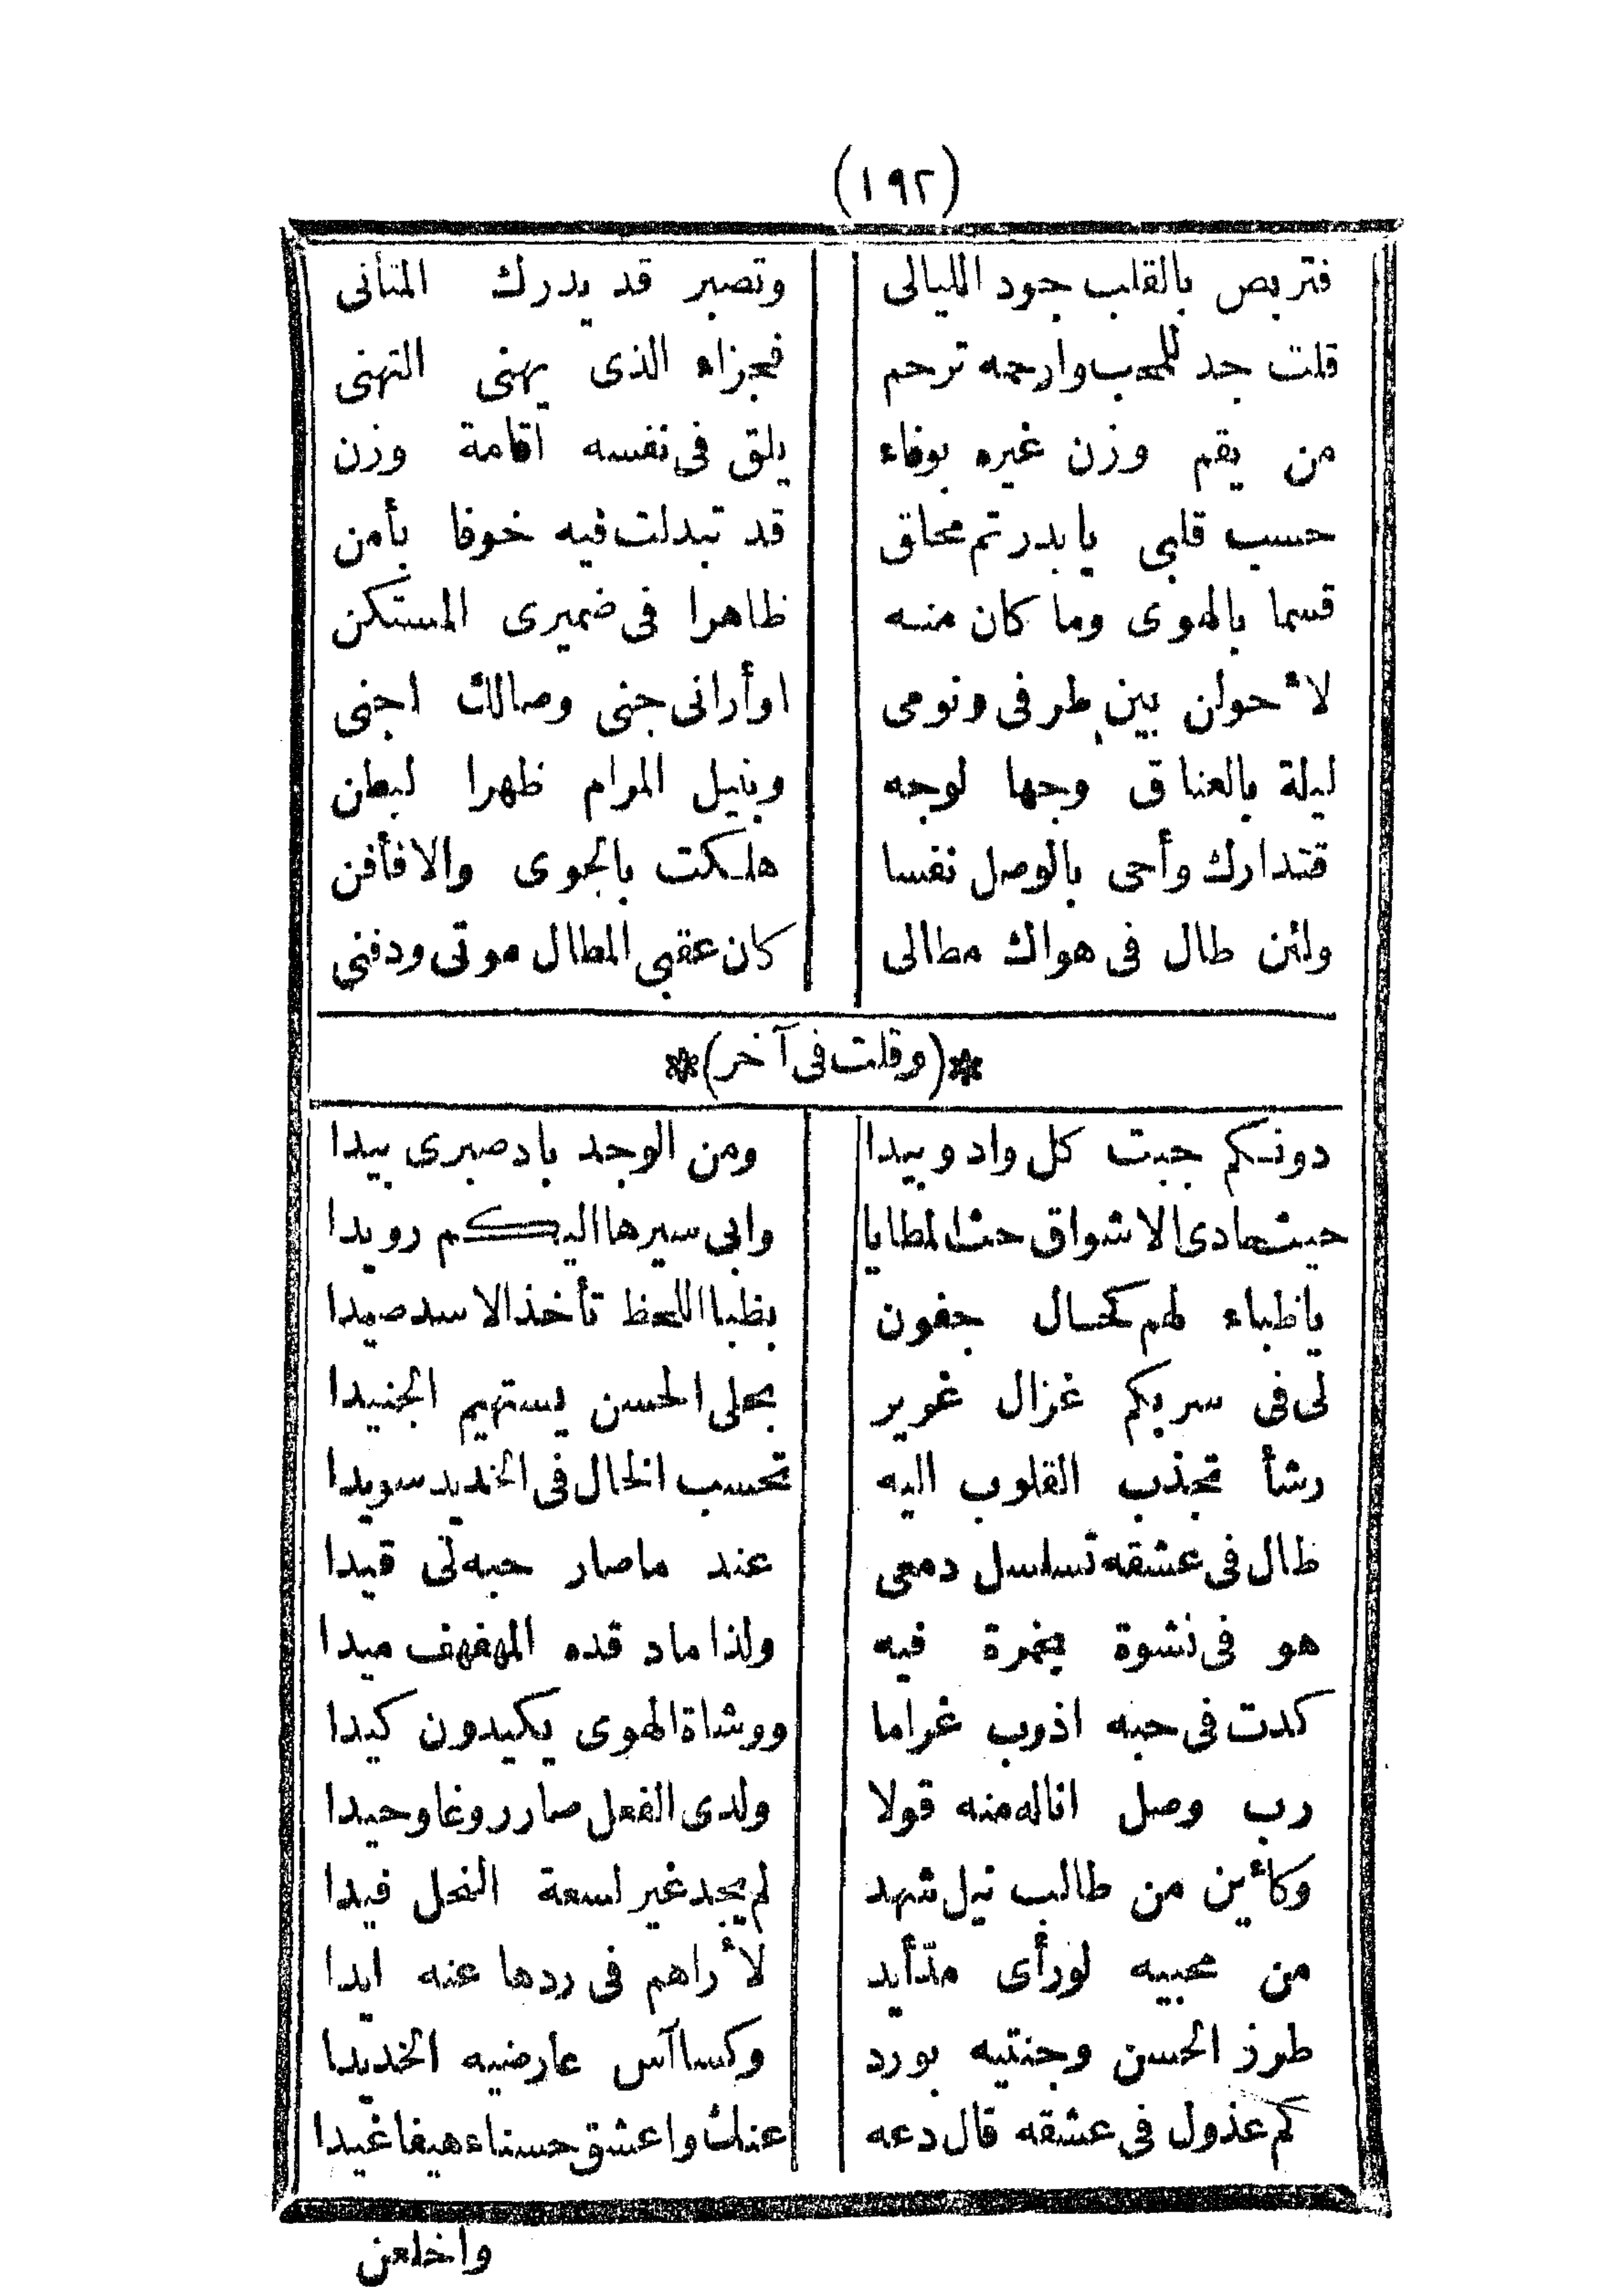 (١٩٢)
فتربص بالقلب جود الليالى وتصبر قد يدرك المتأنى
قلت جد للمحب وارحمه ترحم فجزاء الذى يهنى التهنى
من يقم وزن غيره بوفاء يلق فى نفسه اقامة وزن
حسب قلبى يا بدر تم محاق قد تبدلت فيه خوفا بأمن
قسما بالهوى وما كان منه ظاهرا فى ضميرى المستكن
لأحولن بين طرفى ونومى اوأرانى جنى وصالك اجنى
ليلة بالعناق وجها لوجه وبنيل المرام ظهرا لبطن
فتدارك وأحى بالوصل نفسا هلكت بالجوى والا فأفن
ولئن طال فى هواك مطالى كان عقبى المطال موتى ودفنى
*(وقلت فى آخر)*
دونكم جبت كل واد وبيدا ومن الوجد باد صبرى بيدا
حيث حادى الاشواق حث المطايا وابى سيرها اليكم رويدا
ياظباء لهم كحال جفون بظبا اللحظ تأخذ الاسد صيدا
لى فى سربكم غزال غرير بحلى الحسن يستهيم الجنيدا
رشأ تجذب القلوب اليه تحسب الخال فى الخديد سويدا
طال فى عشقه تسلسل دمعى عند ماصار حبه لى قيدا
هو فى نشوة بخمرة فيه ولذا ماد قده المهفهف ميدا
كدت فى حبه اذوب غراما ووشاة الهوى يكيدون كيدا
رب وصل اناله منه قولا ولدى الفعل صار روغا وحيدا
وكأين من طالب نيل شهد لم يجد غير لسعة النحل فيدا
من محبيه لورأى مدّ أيد لأراهم فى ردها عنه ايدا
طرز الحسن وجنتيه بورد وكسا آس عارضيه الخديدا
كم عذول فى عشقه قال دعه عنك واعشق حسناء هيفا غيدا
واخلعن